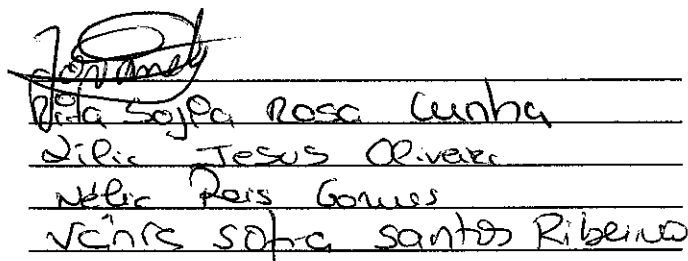 Rita Sofia Rosa Cunha
Lília Jesus Oliveira
Nélia Reis Gomes
Vânia Sofia Santos Ribeiro